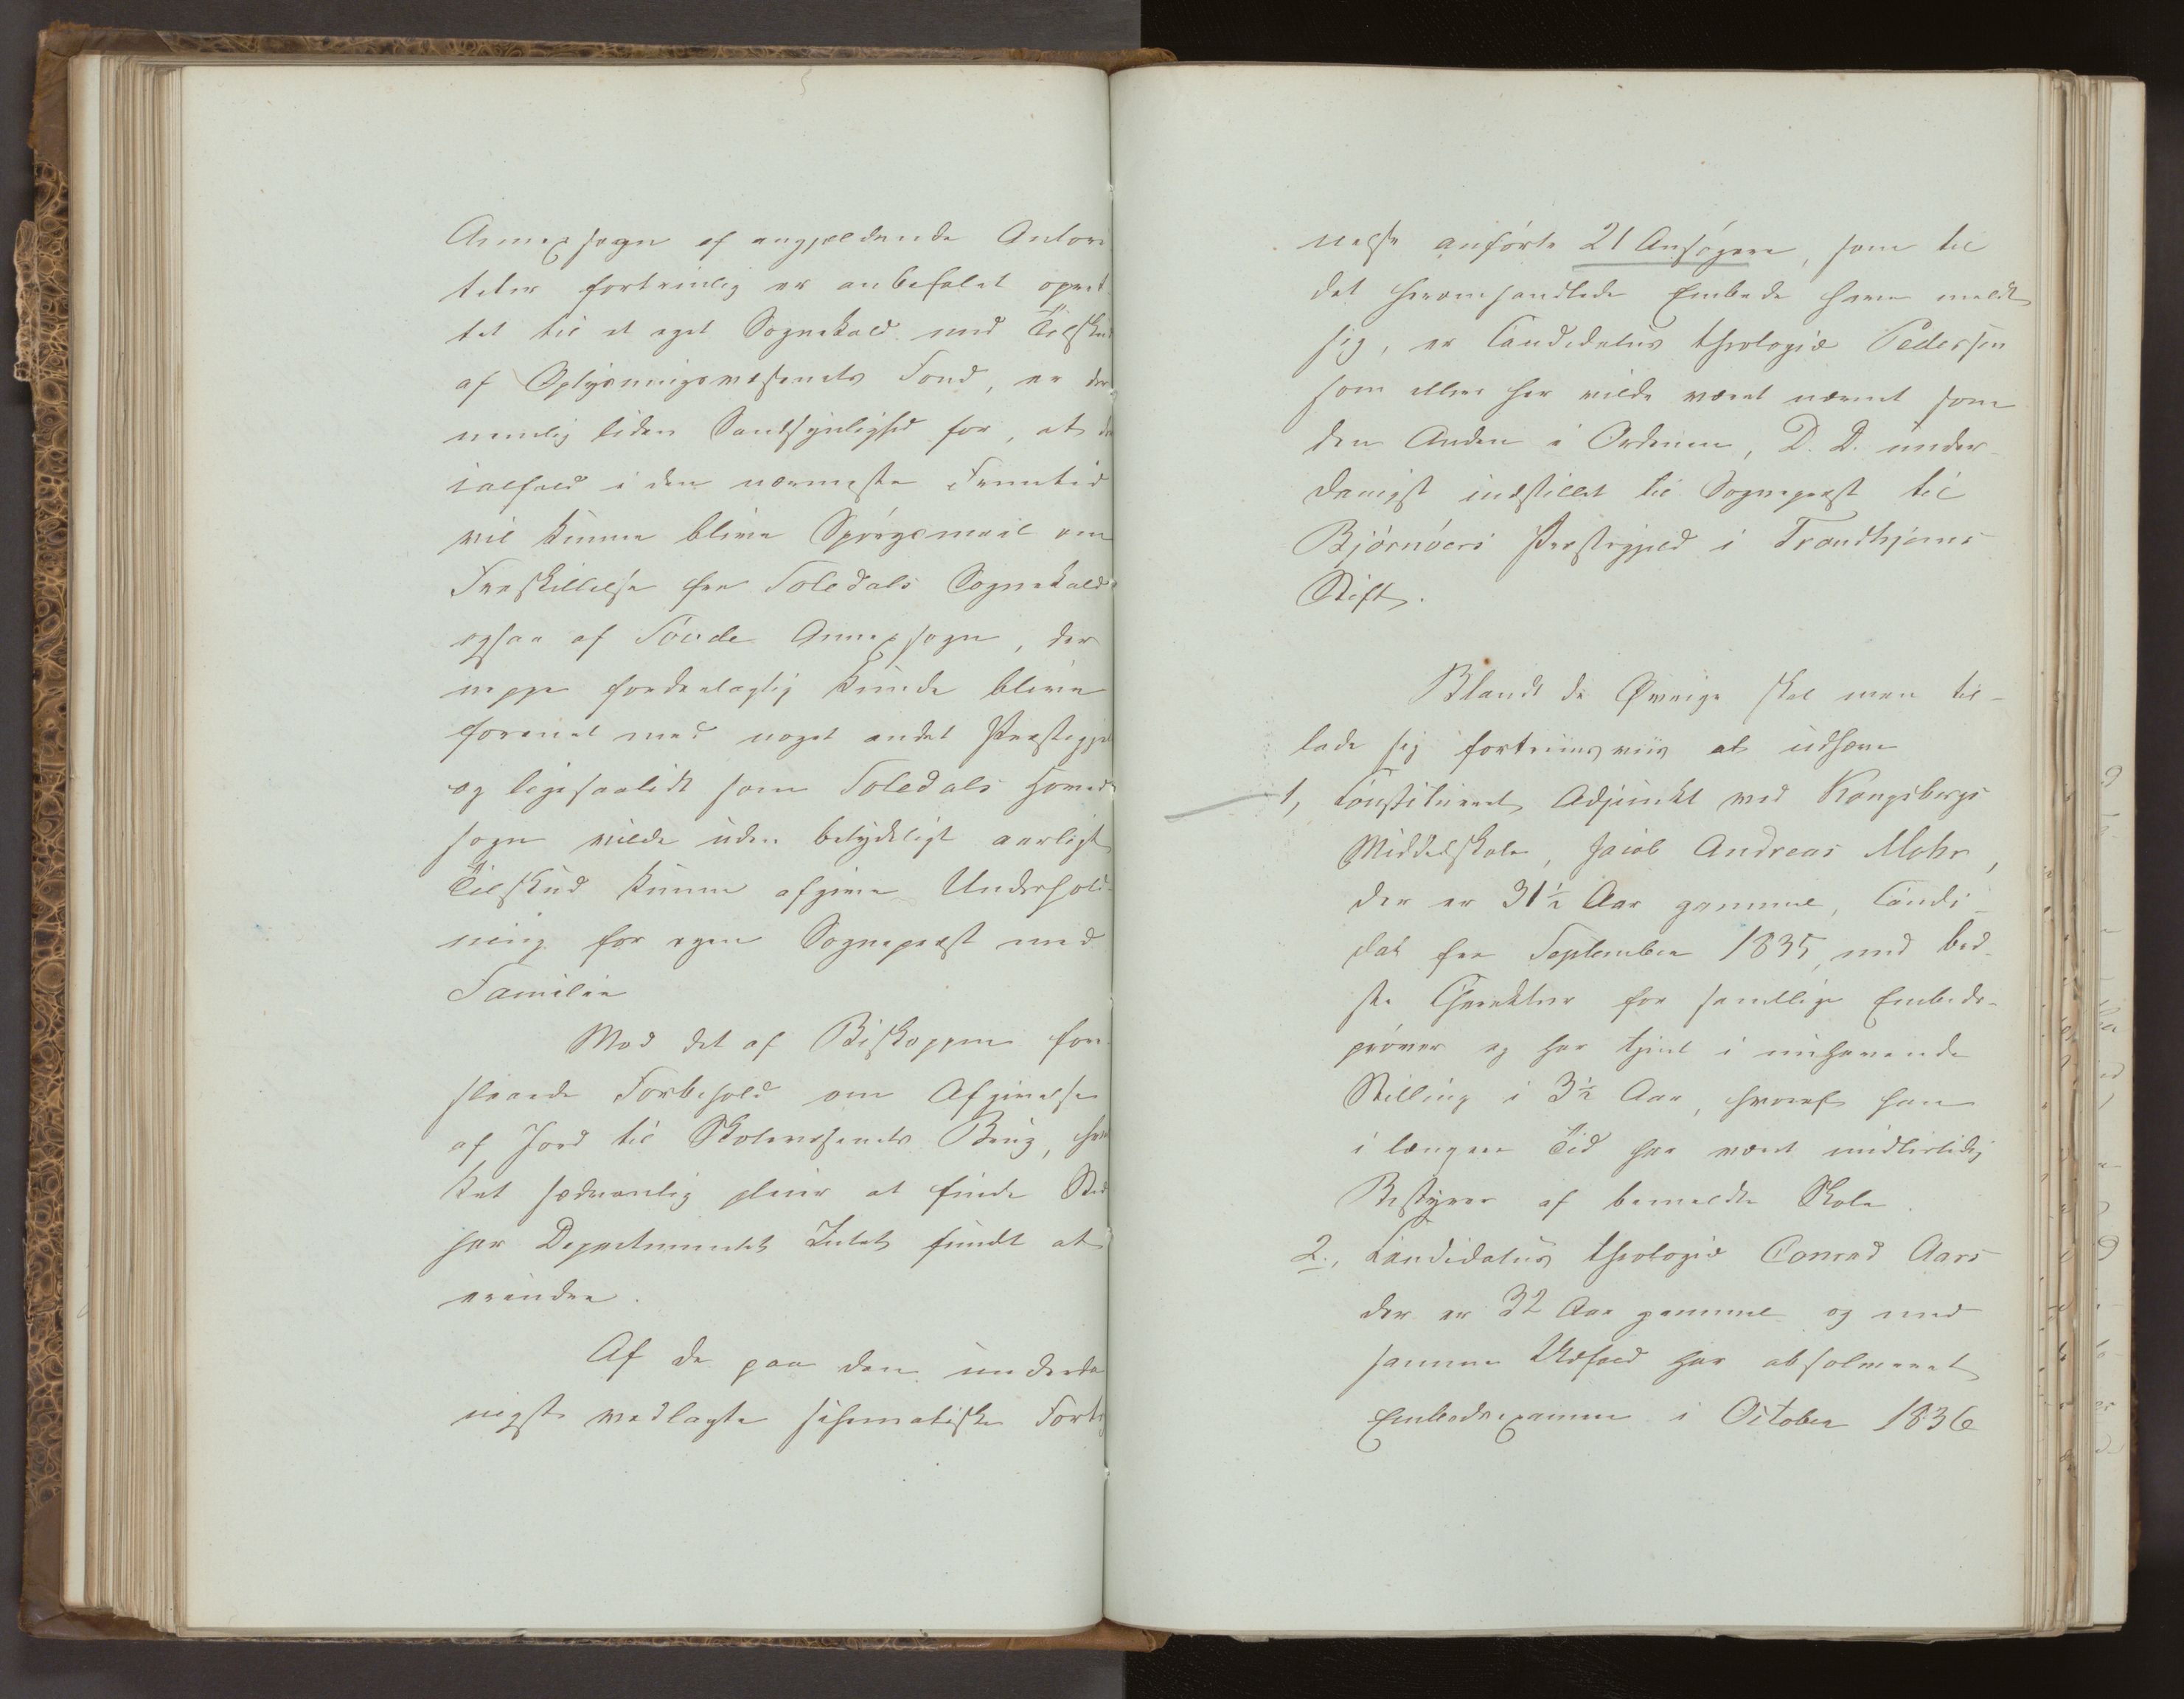 Annexsogn af angjeldende Autori
teter fortrinlig er anbefalet opret
tet til et eget Sognekald med Tilskud
af Oplysningsvæsenets Fond, er der
nemlig liden Sandsynlighed for, at der
ialfald i den nærmeste Fremtid
vil kunne blive Spørgsmaal om
Fraskillelse fra Soledals Sognekald
ogsaa af Sövde Annexsogn, der
neppe fordeelagtig kunde blive
forenet med noget andet Præstegjel
og ligesaalidt som Soledals Hoved
sogn vilde uden betydeligt aarligt
Tilskud kunne afgive Underhold-
ning for egen Sognepræst med
Familie
Mod det af Biskoppen fore
slaaede Forbehold om Afgivelse
af Jord til Skolevæsenets Brug, hvil
ket sædvanlig pleier at finde Sted
har Departementet Intet fundt at
erindre.
Af de paa den underda
nigst vedlagte schematiske Forteg
nelse anførte 21 Ansøgere, som til
det heromhandlede Embede have meldt
sig, er Candidatus theologiæ Pedersen
som ellers her vilde været nævnt som
den Anden i Ordenen, D. D. under-
danigst indstillet til Sognepræst til
Bjørnøers Præstegjeld i Trondhjems
Stift.
Blandt de Øvrige skal man til-
lade sig fortrinsviis at udhæve
1, Constitueret Adjunkt ved Kongsbergs
Middelskole, Jacob Andreas Mohr,
der er 31½ Aar gammel, Candi-
dat fra September 1835, med bed-
ste Charakter for samtlige Embeds-
prøver og har tjent i nuhavende
Stilling i 3½ Aar, hvoraf han
i længere Tid har været midlertidig
Bestyrer af bemeldte Skole.
2., Candidatus theologiæ Conrad Aars
der er 32 Aar gammel og med
samme Udfald har absolveret
Embedsexamen i October 1836